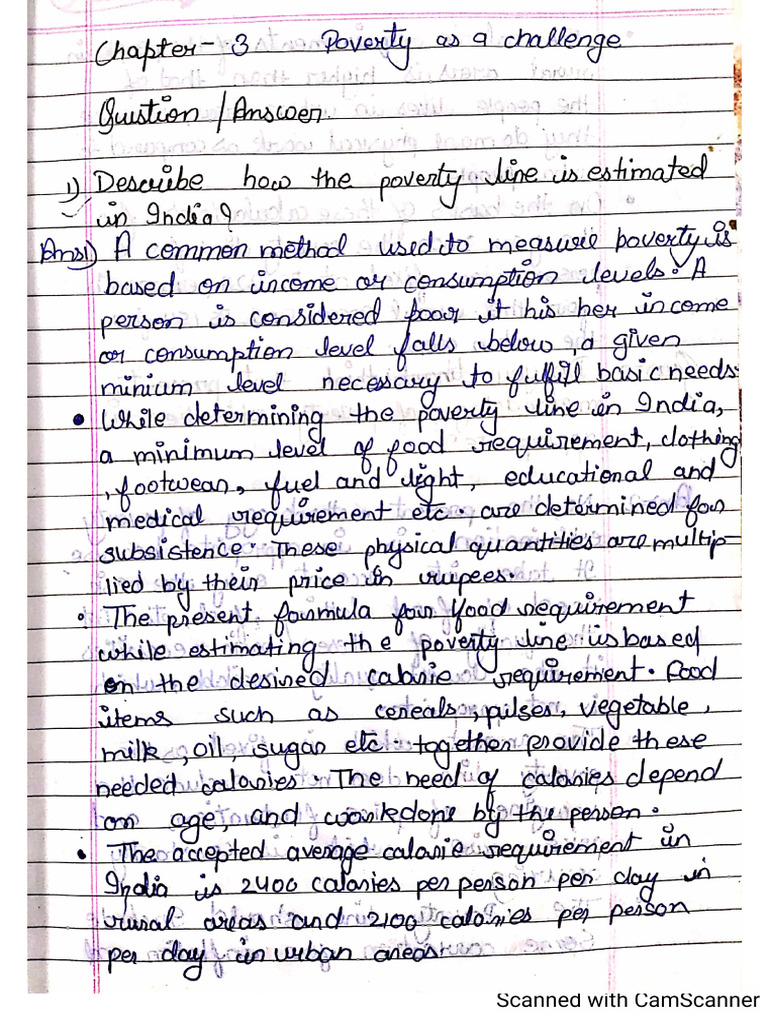 Chapter- 3 Poverty as a challenge
Question /Answer
1) Describe how the poverty line is estimated
in India?
Ans1) A common method used to measure poverty is
based on income or consumption levels. A
person is considered poor it his her income
or consumption level falls below, a given
minium level necessary to fulfill basic needs.
• While determining the poverty line in India,
a minimum level of food requirement, clothing
, footwear, fuel and light, educational and
medical requirement etc. are determined for
subsistence. These physical quantities are multip-
lied by their price in rupees.
• The present formula for food requirement
while estimating the poverty line is based
on the desired calorie requirement. Food
items such as cereals, pulses, vegetable,
milk, oil, sugar etc together provide these
needed calories. The need of calories depend
on age, and work done by the person.
• The accepted average calorie requirement in
India is 2400 calories per person per day in
rural areas and 2100 calories per person
per day in urban areas.
Scanned with CamScanner